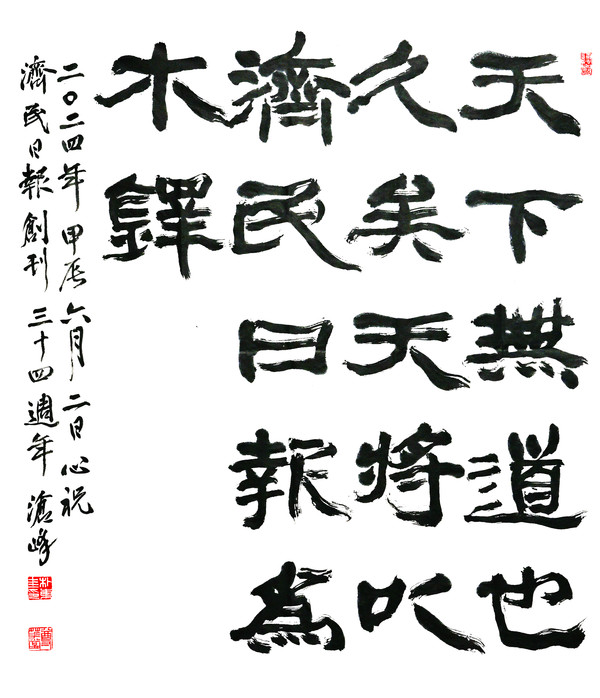 天下無道也
久矣天將以
濟民日報為
木鐸
二〇二四年甲辰六月二日心祝
濟民日報創刊三十四週年滄峰